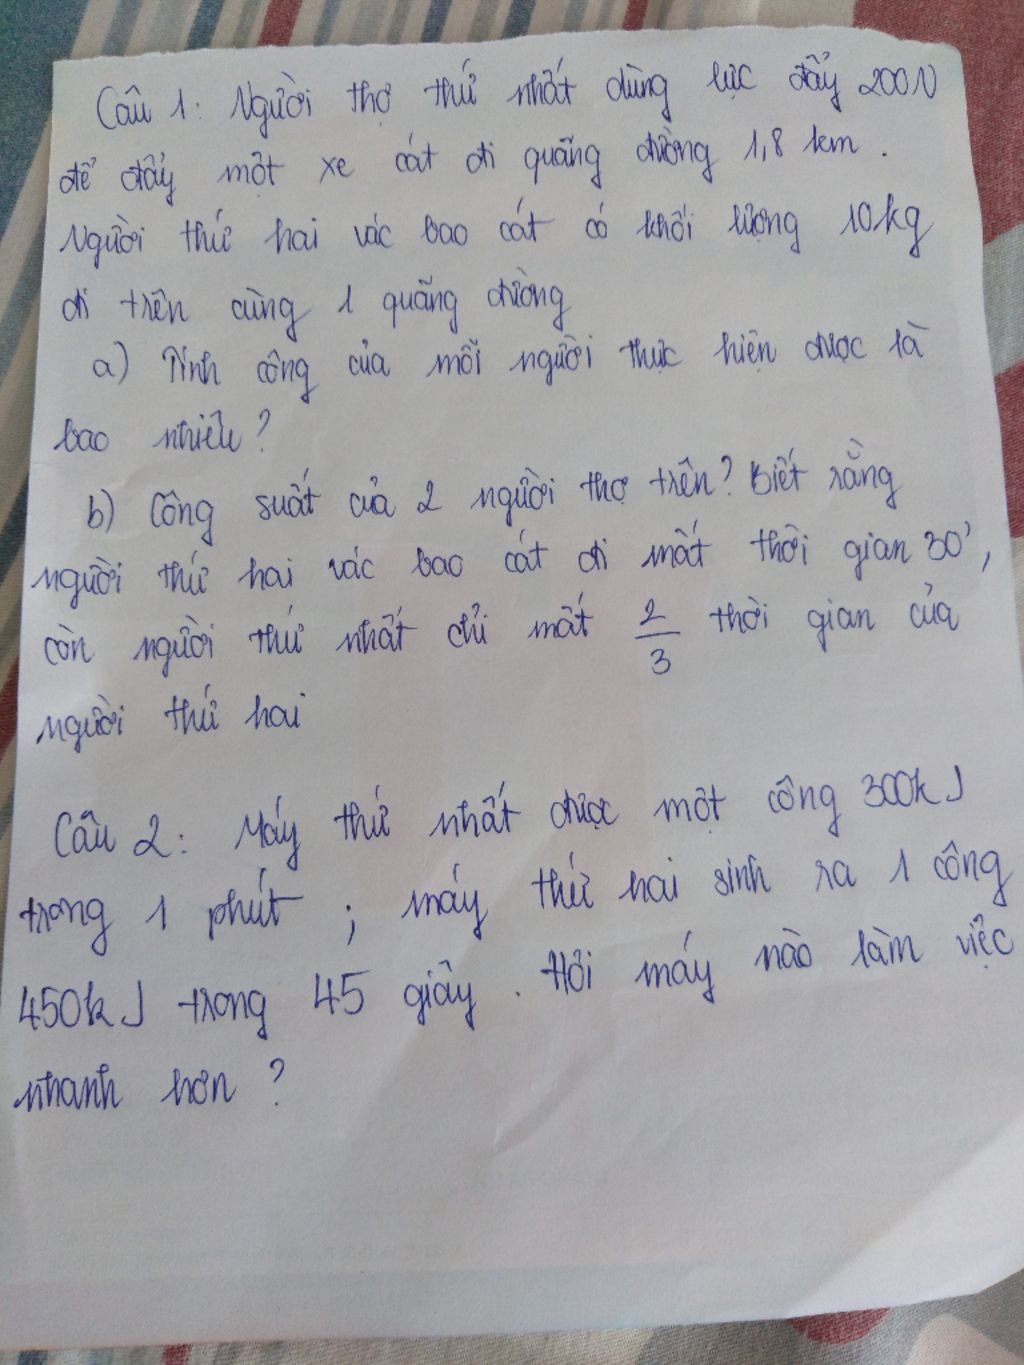 Câu 1: Người thợ thứ nhất dùng lực đẩy 200N
để đẩy một xe cát đi quãng đường 1,8 km.
Người thứ hai vác bao cát có khối lượng 10kg
đi trên cùng 1 quãng đường
a) Tính công của mỗi người thực hiện được là
bao nhiêu?
b) Công suất của 2 người thợ trên? Biết rằng
người thứ hai vác bao cát đi mất thời gian 30',
còn người thứ nhất chỉ mất 2/3 thời gian của
người thứ hai
Câu 2: Máy thứ nhất được một công 300kJ
trong 1 phút; máy thứ hai sinh ra 1 công
450kJ trong 45 giây. Hỏi máy nào làm việc
nhanh hơn?